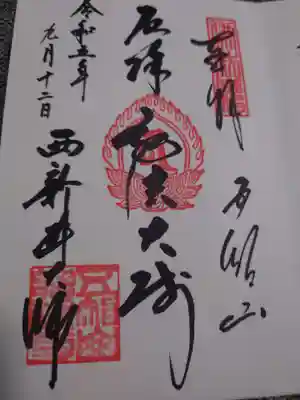 奉拝
五智山
厄除弘法大師
西新井大師
令和五年
九月十二日